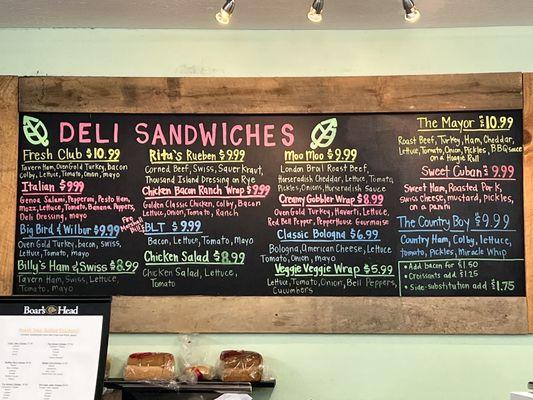 DELI SANDWICHES
Fresh Club $10.99
Tavern Ham, OvenGold Turkey, bacon
Colby, Lettuce, Tomato, Onion, mayo
Italian $9.99
Genoa Salami, Pepperoni, Pesto Ham,
Mozz, Lettuce, Tomato, Banana Peppers,
Deli Dressing, mayo
Big Bird & Wilbur $9.99
Oven Gold Turkey, bacon, swiss,
Lettuce, Tomato, mayo
Billy's Ham & Swiss $8.99
Tavern Ham, Swiss, Lettuce,
Tomato, Mayo
Rita's Rueben $9.99
Corned Beef, Swiss, Sauer Kraut,
Thousand Island Dressing on Rye
Chicken Bacon Ranch Wrap $9.99
Golden Classic Chicken, Colby, Bacon
Lettuce, Onion, Tomato, Ranch
BLT $9.99
Bacon, Lettuce, Tomato, Mayo
Chicken Salad $8.99
Chicken Salad, Lettuce,
Tomato
Moo Moo $9.99
London Broil Roast Beef,
Horseradish Cheddar, Lettuce, Tomato,
Pickles, Onions, Horseradish Sauce
Creamy Gobbler Wrap $8.99
Oven Gold Turkey, Havarti, Lettuce,
Red Bell Pepper, Pepperhouse Gourmaise
Classic Bologna $6.99
Bologna, American Cheese, Lettuce
Tomato, Onion, Mayo
Veggie Veggie Wrap $5.99
Lettuce, Tomato, Onion, Bell Peppers,
Cucumbers
The Mayor $10.99
Roast Beef, Turkey, Ham, Cheddar,
Lettuce, Tomato, Onion, Pickles, BBQ Sauce
on a Hoagie Roll
Sweet Cuban $9.99
Sweet Ham, Roasted Pork,
Swiss Cheese, mustard, pickles,
on a panini
The Country Boy $9.99
Country Ham, Colby, lettuce,
tomato, pickles, Miracle Whip
• Add bacon for $1.50
• Croissants add $1.25
• Side-substitution add $1.75
Boar's Head